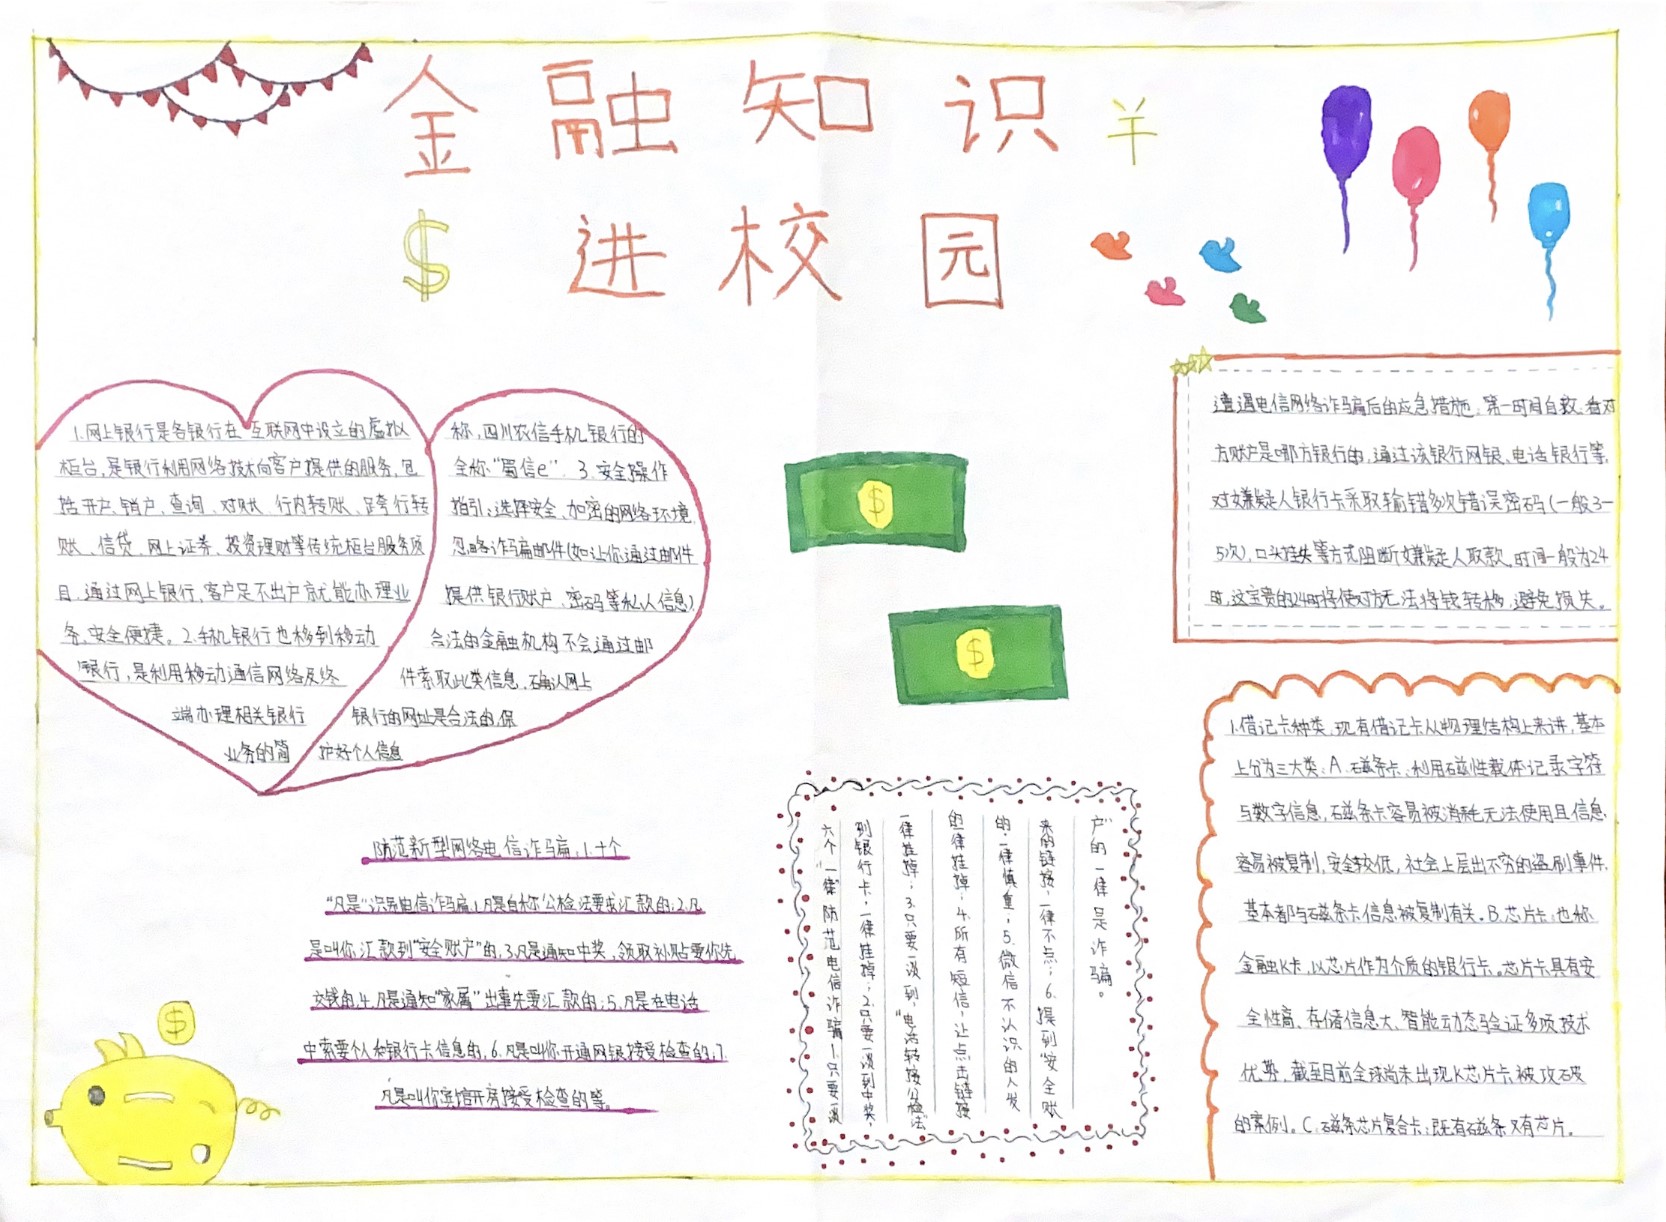 金融知识¥
$进校园
1.网上银行是各银行在互联网中设立的虚拟
柜台,是银行利用网络技术向客户提供的服务,包
括开户、销户、查询、对账、行内转账、跨行转
账、信贷、网上证券、投资理财等传统柜台服务项
目,通过网上银行,客户足不出户就能办理业
务,安全便捷。2.手机银行也移到移动
银行,是利用移动通信网络及终
端办理相关银行
业务的简
称,四川农信手机银行的
全称“蜀信e”.3.安全操作
指引:选择安全、加密的网络环境,
忽略诈骗邮件(如让你通过邮件
提供银行账户、密码等私人信息),
合法的金融机构不会通过邮
件索取此类信息.确认网上
银行的网址是合法的.保
护好个人信息
$
$
遭遇电信网络诈骗后的应急措施:第一时间自救,看对
方账户是哪方银行的,通过该银行网银、电话银行等,
对嫌疑人银行卡采取输错多次错误密码(一般3—
5次),口头挂失等方式阻断嫌疑人取款,时间一般为24
时,这宝贵的24时将使对方无法将钱转移,避免损失。
1.借记卡种类,现有借记卡从物理结构上来讲,基本
上分为三大类:A.磁条卡、利用磁性载体记录字符
与数字信息,磁条卡容易被消耗无法使用且信息
容易被复制,安全较低,社会上层出不穷的盗刷事件.
基本都与磁条卡信息被复制有关。B.芯片卡:也称
金融IC卡,以芯片作为介质的银行卡。芯片卡具有安
全性高、存储信息大、智能动态验证多项技术
优势,截至目前全球尚未出现IC芯片卡被攻破
的案例。C.磁条芯片复合卡:既有磁条又有芯片。
防范新型网络电信诈骗,1.十个
“凡是”识别电信诈骗,1.凡是自称公检法要求汇款的;2.凡
是叫你汇款到“安全账户”的,3.凡是通知中奖、领取补贴要你先
交钱的,4.凡是通知“家属”出事先要汇款的;5.凡是在电话
中索要个人和银行卡信息的,6.凡是叫你开通网银接受检查的,7.
凡是叫你宾馆开房接受检查的等。
六个“一律”防范电信诈骗1.只要一谈
到银行卡,一律挂掉;2.只要一谈到中奖,
一律挂掉;3.只要一谈到“电话转接公检法”
的一律挂掉;4.所有短信,让点击链接
的,一律慎重;5.微信不认识的人发
来的链接,一律不点;6.提到“安全账
户”的一律是诈骗。
$